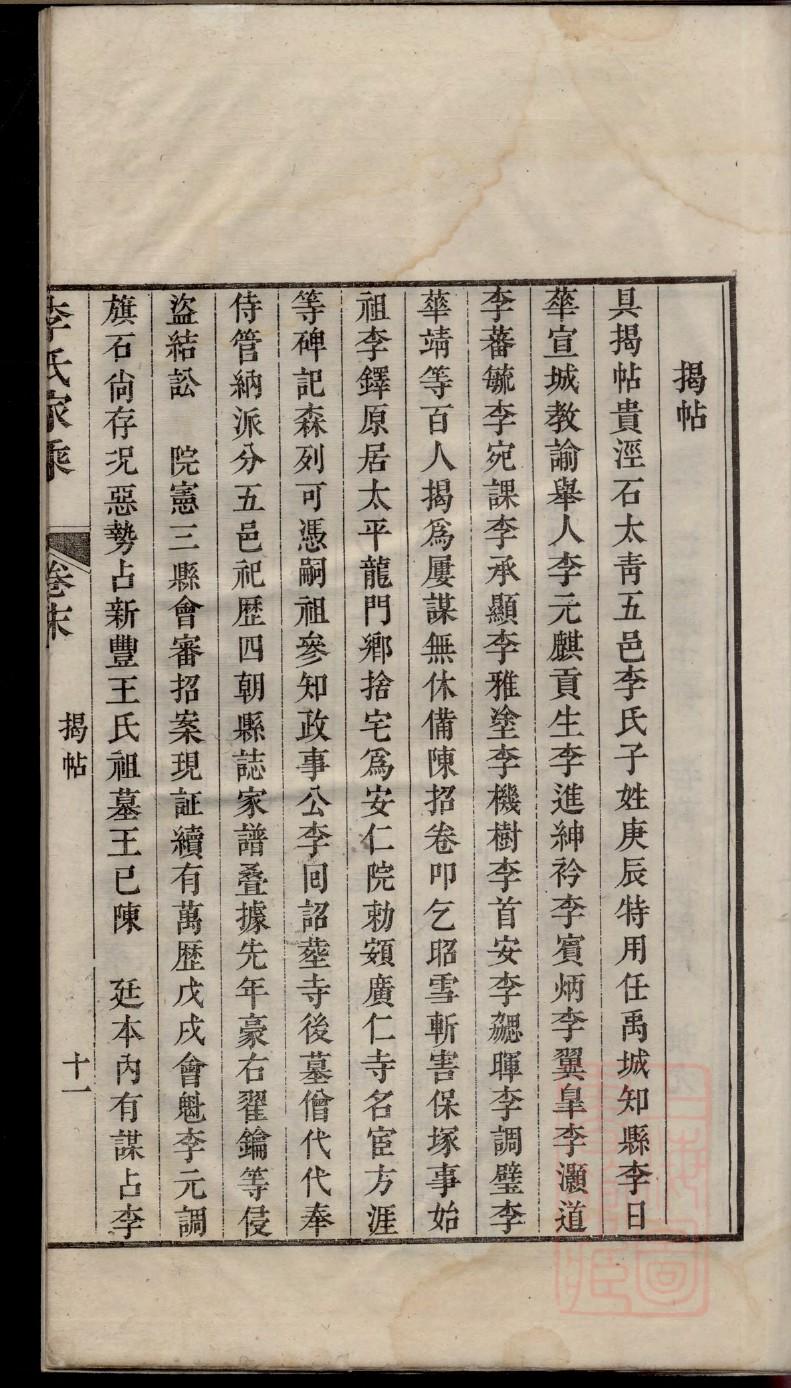 揭帖
具揭帖貴涇石太靑五邑李氏子姓庚辰特用任禹城知縣李日
華宣城教諭舉人李元麒貢生李進紳衿李賓炳李翼臯李灝道
李蕃毓李宛課李承顯李雅塗李機樹李首安李勰暉李調璧李
華靖等百人揭爲屢謀無休備陳招卷叩乞昭雪斬害保塚事始
祖李鐸原居太平龍門鄉捨宅爲安仁院勅額廣仁寺名宦方涯
等碑記森列可憑嗣祖參知政事公李囘詔塟寺後墓僧代代奉
侍管納派分五邑祀歷四朝縣誌家譜叠據先年豪右翟鑰等侵
盜結訟　院憲三縣會審招案現証續有萬歷戊戌會魁李元調
旗石尙存況惡勢占新豐王氏祖墓王已陳　廷本內有謀占李
李氏家乘　卷末　揭帖　十一